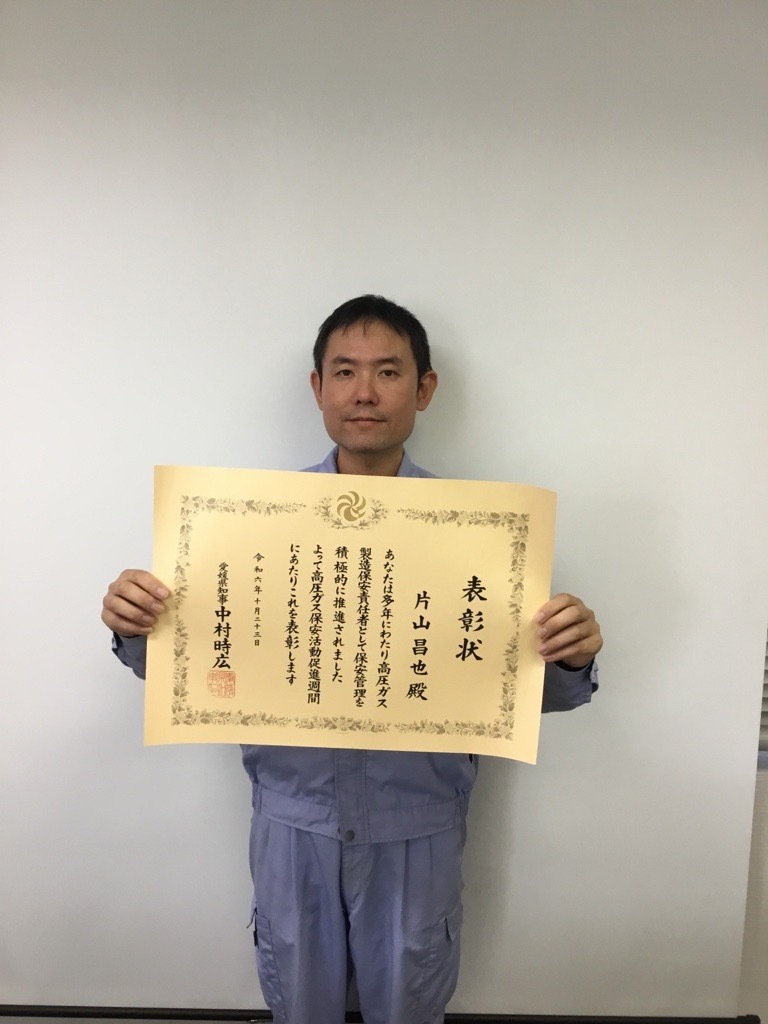 表彰状
片山昌也殿
あなたは多年にわたり高圧ガス
製造保安責任者として保安管理を
積極的に推進されました
よって高圧ガス保安活動促進週間
にあたりこれを表彰します
令和六年十月二十三日
愛媛県知事 中村時広